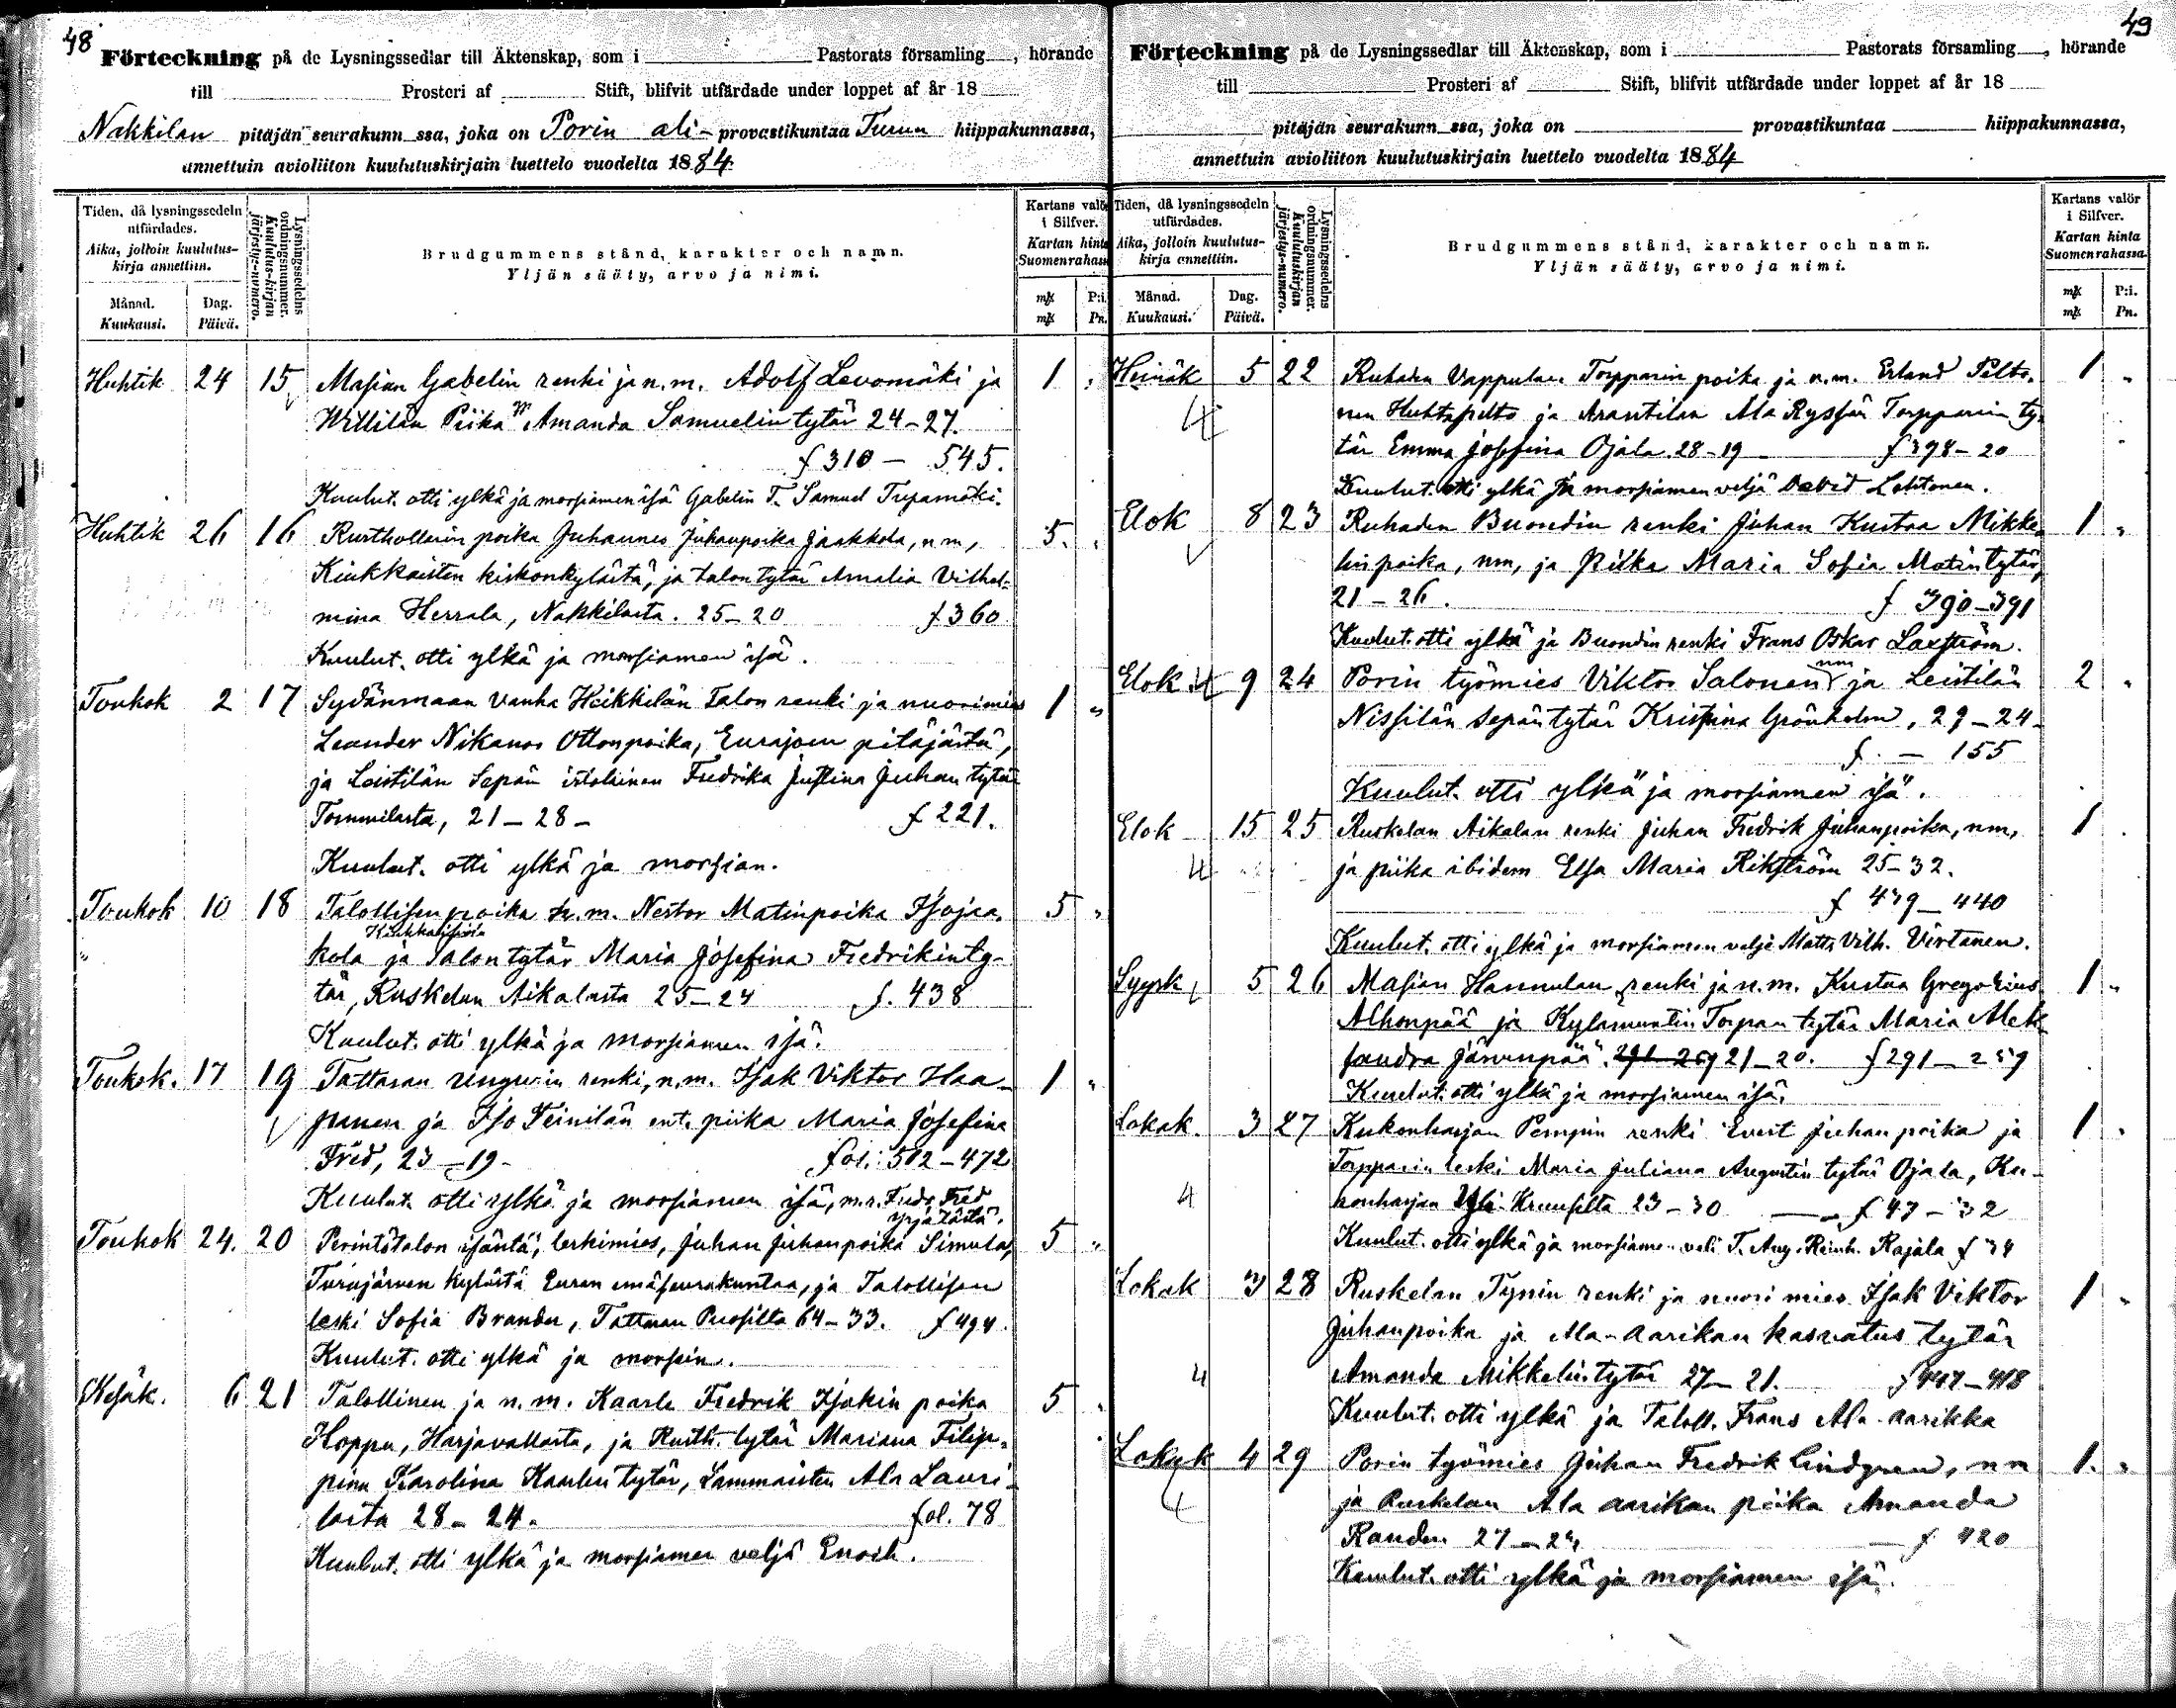 48
Förteckning på de Lysningssedlar till Äktenskap, som i Pastorats församling, hörande
till Prosteri af Stift, blifvit utfärdade under loppet af år 18
Nakkilan pitäjän seurakunn ssa, joka on Porin ali- provastikuntaa Turun hiippakunnassa,
annettuin avioliiton kuulutuskirjain luettelo vuodelta 1884.
Tiden, då lysningssedeln utfärdades.
Aika, jolloin kuulutus-kirja annettiin.
Månad. Kuukausi.
Dag. Päivä.
Lysningssedelns ordningsnummer. Kuulutus-kirjan järjestys-numero.
Brudgummens stånd, karakter och namn.
Yljän sääty, arvo ja nimi.
Kartans valör i Silfver.
Kartan hinta Suomenrahassa
mk P:i.
mk Pn.
Huhtik 24 15 Masian Gabelin renki ja n.m. Adolf Levomäki ja 1 "
Willilän Piika Amanda Samuelintytär 24-27.
f 310 - 545.
Kuulut. otti ylkä ja morsiamen isä Gabelin T. Samuel Trepamäki.
Huhtik 26 16 Rusthollarin poika Juhannes Juhanpoika Jaakkola, n.m, 5. "
Kiukkaisten kiskonkylästä, ja talontytär Amalia Vilhel-
mina Herrala, Nakkilasta. 25-20 f 360
Kuulut. otti ylkä ja morsiamen isä.
Toukok 2 17 Sydänmaan vanha Heikkilän Talon renki ja nuorimies 1 "
Leander Nikanor Ottonpoika, Eurajoen pitäjästä,
ja Leistilän Sepän itsolainen Fredrika Justina Juhantytär
Tommilasta, 21-28- f 221.
Kuulut. otti ylkä ja morsian.
Toukok 10 18 Talollisen poika n.m. Nestor Matinpoika Isojaa- 5 "
Kiukkaisista
" kola ja talontytär Maria Josefina Fredrikinty-
tär, Ruskelan Aikalasta 25-24 f. 438
Kuulut. otti ylkä ja morsiamen isä.
Toukok. 17 19 Tattaran renki, n.m. Isak Viktor Haa- 1 "
panen ja Iso Teinilän ent. piika Maria Josefina
Fred, 23-19- fol: 512-472
Kuulut. otti ylkä ja morsiamen isä, m.r. Fredr. Fred
Toukok 24. 20 Perintötalon isäntä, leskimies, Juhan Juhanpoika Simula, 5 "
Turajärven kylästä Euran emäseurakuntaa, ja Talollisen
leski Sofia Brander, Tattaran Puosilta 64-33. f 494.
Kuulut. otti ylkä ja morsian.
Kesäk. 6 21 Talollinen ja n.m. Kaarle Fredrik Isakin poika 5 "
Hoppu, Harjavallasta, ja Rusth. tytär Mariana Filip-
pina Karolina Kaarlentytär, Lammaisten Ala Lauri-
lasta 28-24. fol. 78
Kuulut. otti ylkä ja morsiamen veljä Enoch.
49
Förteckning på de Lysningssedlar till Äktenskap, som i Pastorats församling, hörande
till Prosteri af Stift, blifvit utfärdade under loppet af år 18
pitäjän seurakunn ssa, joka on provastikuntaa hiippakunnassa,
annettuin avioliiton kuulutuskirjain luettelo vuodelta 1884
Tiden, då lysningssedeln utfärdades.
Aika, jolloin kuulutus-kirja annettiin.
Månad. Kuukausi.
Dag. Päivä.
Lysningssedelns ordningsnummer. Kuulutuskirjan järjestys-numero.
Brudgummens stånd, karakter och namn.
Yljän sääty, arvo ja nimi.
Kartans valör i Silfver.
Kartan hinta Suomenrahassa.
mk P:i.
mk Pn.
Heinäk 5 22 Ruhaden Vappulan Torpparin poika ja n.m. Erland Pelto- 1 "
4 nen Huhtapelto ja Arantilan Ala Ryssän Torpparin ty-
tär Emma Josefina Ojala. 28-19 f 398-20
Kuulut. otti ylkä ja morsiamen veljä David Lehtonen.
Elok 8 23 Ruhaden Buondin renki Juhan Kustaa Mikke- 1 "
linpoika, nm, ja Piika Maria Sofia Matintytär,
21-26. f 390-391
Kuulut. otti ylkä ja Buondin renki Frans Oskar Laxström.
Elok 4 9 24 Porin työmies Viktor Salonen nm ja Leistilän 2 "
Nissilän sepäntytär Kristina Grönholm, 29-24-
f. - 155
Kuulut. otti ylkä ja morsiamen isä.
Elok 15 25 Ruskelan Aikalan renki Juhan Fredrik Juhanpoika, nm, 1
4 ja piika ibidem Elsa Maria Rikström 25-32.
f 439-440
Kuulut. otti ylkä ja morsiamen veljä Matts Vilh. Virtanen.
Syysk 5 26 Masian Hannulan renki ja n.m. Kustaa Gregorius 1 "
Alhonpää ja Torpan tytär Maria Alek-
sandra Järvenpää. 21-20. f 291-259
Kuulut. otti ylkä ja morsiamen isä.
Lokak. 3 27 Kukonharjan Pempin renki Evert Juhanpoika ja 1 "
Torpparin leski Maria Juliana Augustin tytär Ojala, Ku-
4 konharjan Yli-Kruusilta 23-30 f 47-32
Kuulut. otti ylkä ja morsiamen veli T. Aug. Reinh. Rajala f 34
Lokak 3 28 Ruskelan Tynin renki ja nuori mies Isak Viktor 1 "
Juhanpoika ja Ala-Aarikan kasvatus tytär
4 Amanda Mikkelintytär 27-21. f 447-418
Kuulut. otti ylkä ja Taloll. Frans Ala-aarikka
Lokak 4 29 Porin työmies Juhan Fredrik Lindgren, nm 1. "
4 ja Ruskelan Ala aarikan piika Amanda
Randen 27-24 f 420
Kuulut. otti ylkä ja morsiamen isä.